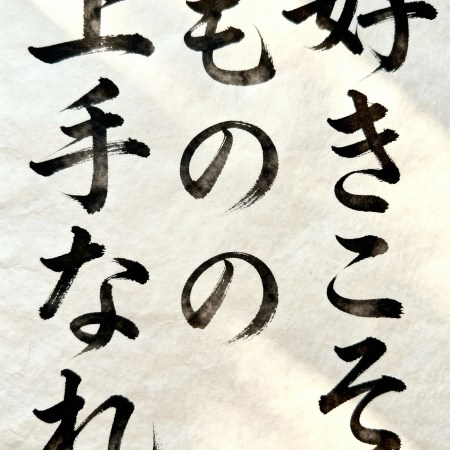 好きこそ
ものの
上手なれ